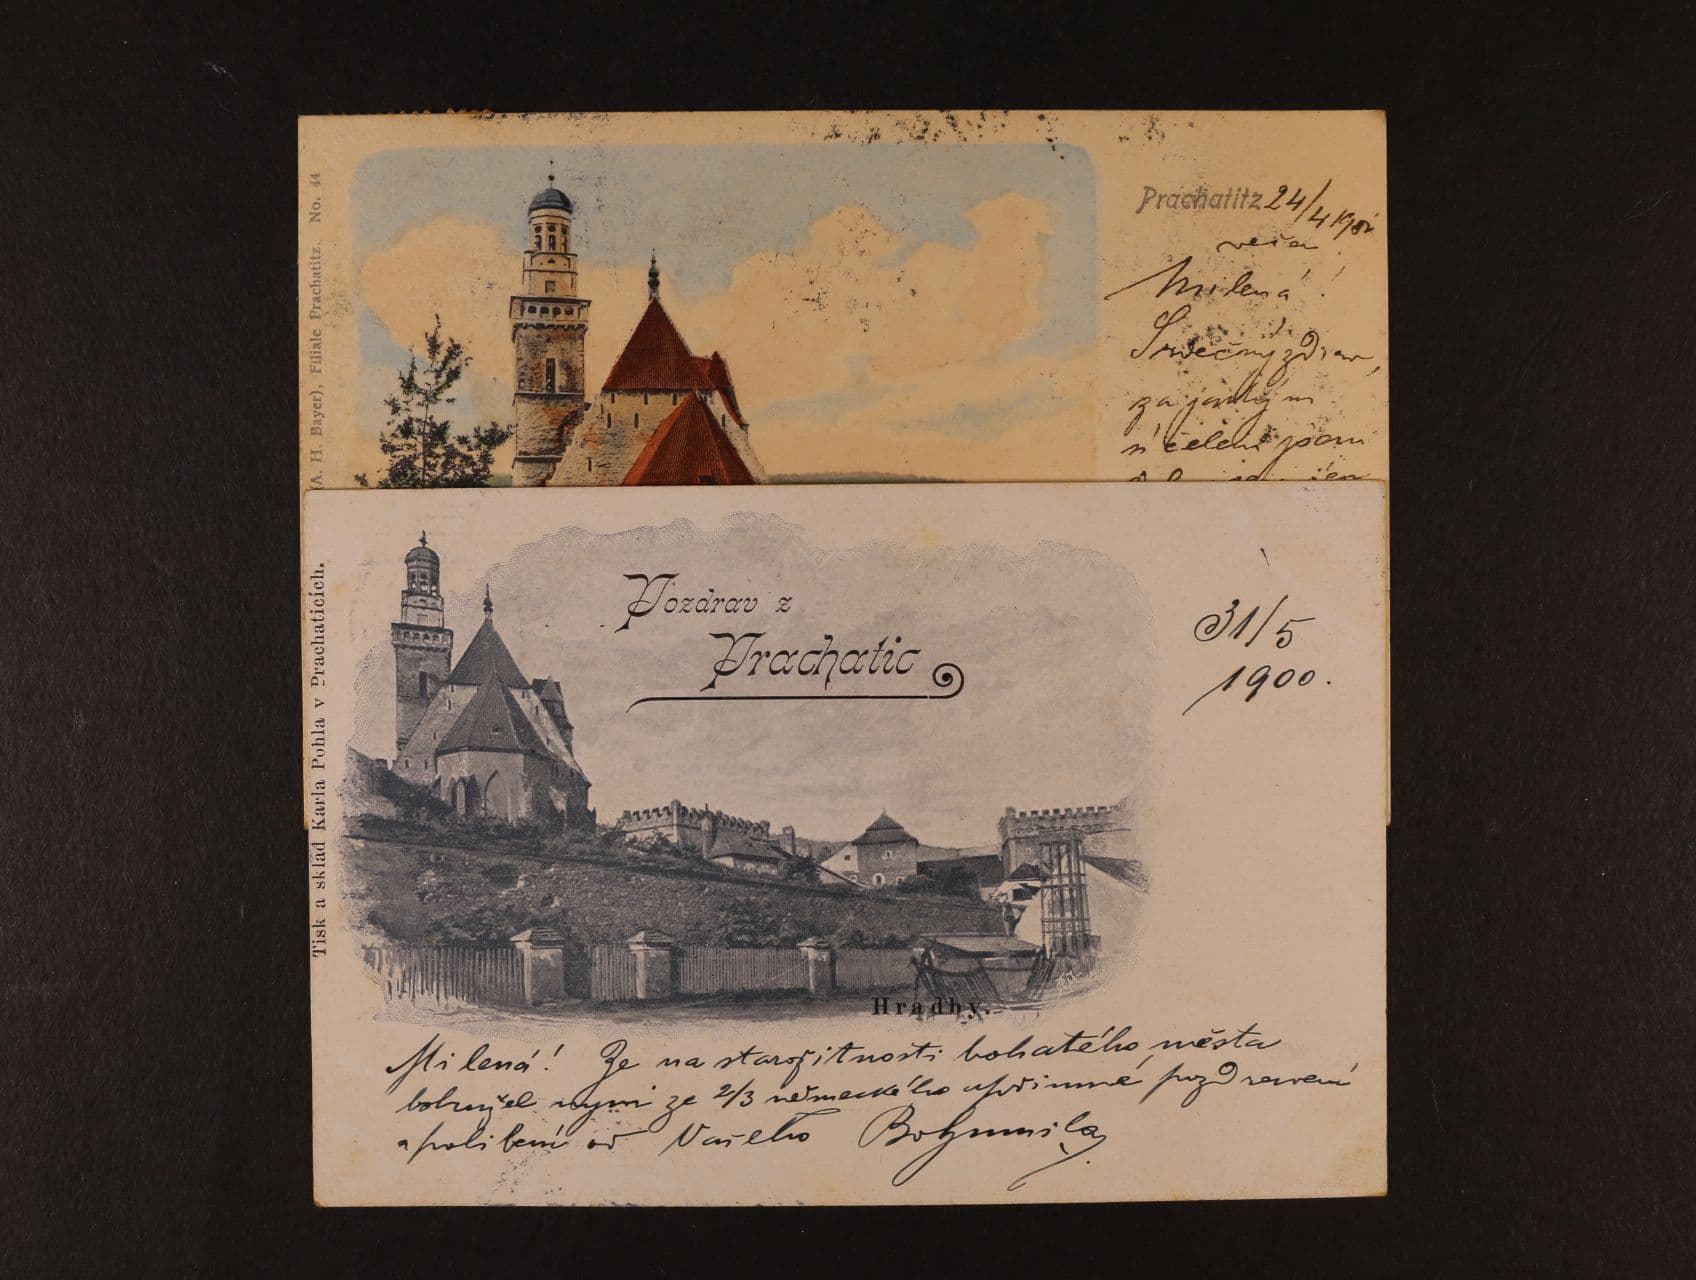 (A. H. Bayer), Filiale Prachatitz. No. 44
Prachatitz 24/4
Milená!
Srdečný zdrav
za
Tisk a sklad Karla Pohla v Prachaticích.
Pozdrav z
Prachatic
31/5
1900.
Hradby.
Milená! Ze na starožitnosti bohatého města
bohužel nyní ze 2/3 německého upřímné pozdravení
a políbení od Vašeho Bohumila